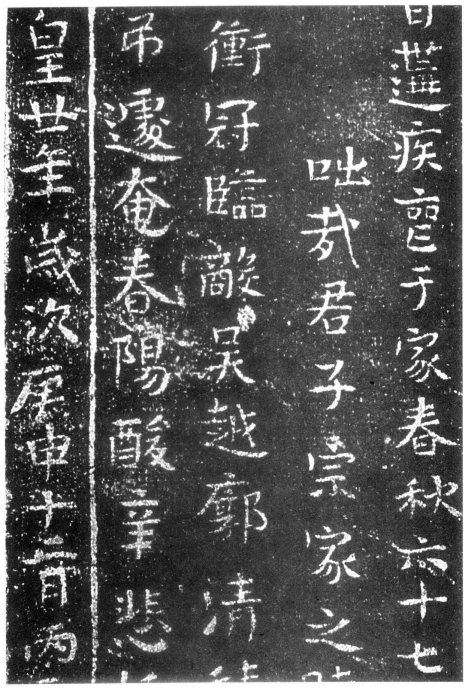 遘疾于家春秋六十七
咄哉君子宗家之
衝冠臨敵吴越廓清
弔遽奄春陽酸辛悲
皇廿年歲次庚申十二月丙